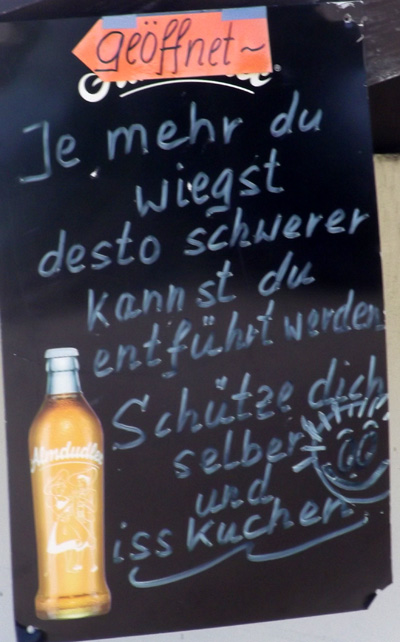 geöffnet~
Je mehr du
wiegst
desto schwerer
kannst du
entführt werden.
Schütze dich
selber
und
iss kuchen
Almdudler